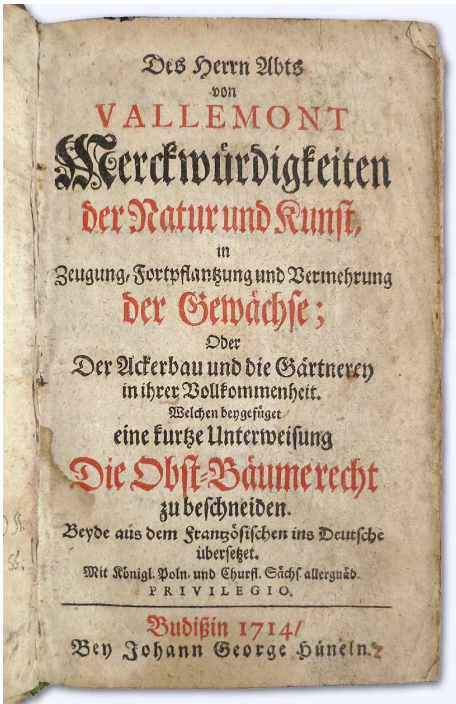 Des Herrn Abts
von
VALLEMONT
Merckwürdigkeiten
der Natur und Kunst,
in
Zeugung, Fortpflantzung und Vermehrung
der Gewächse;
Oder
Der Ackerbau und die Gärtnerey
in ihrer Vollkommenheit.
Welchen beygefüget
eine kurtze Unterweisung
Die Obst-Bäume recht
zu beschneiden.
Beyde aus dem Frantzösischen ins Deutsche
übersetzet.
Mit Königl. Poln. und Churfl. Sächs. allergnäd.
PRIVILEGIO.
Budißin 1714/
Bey Johann George Hüneln.